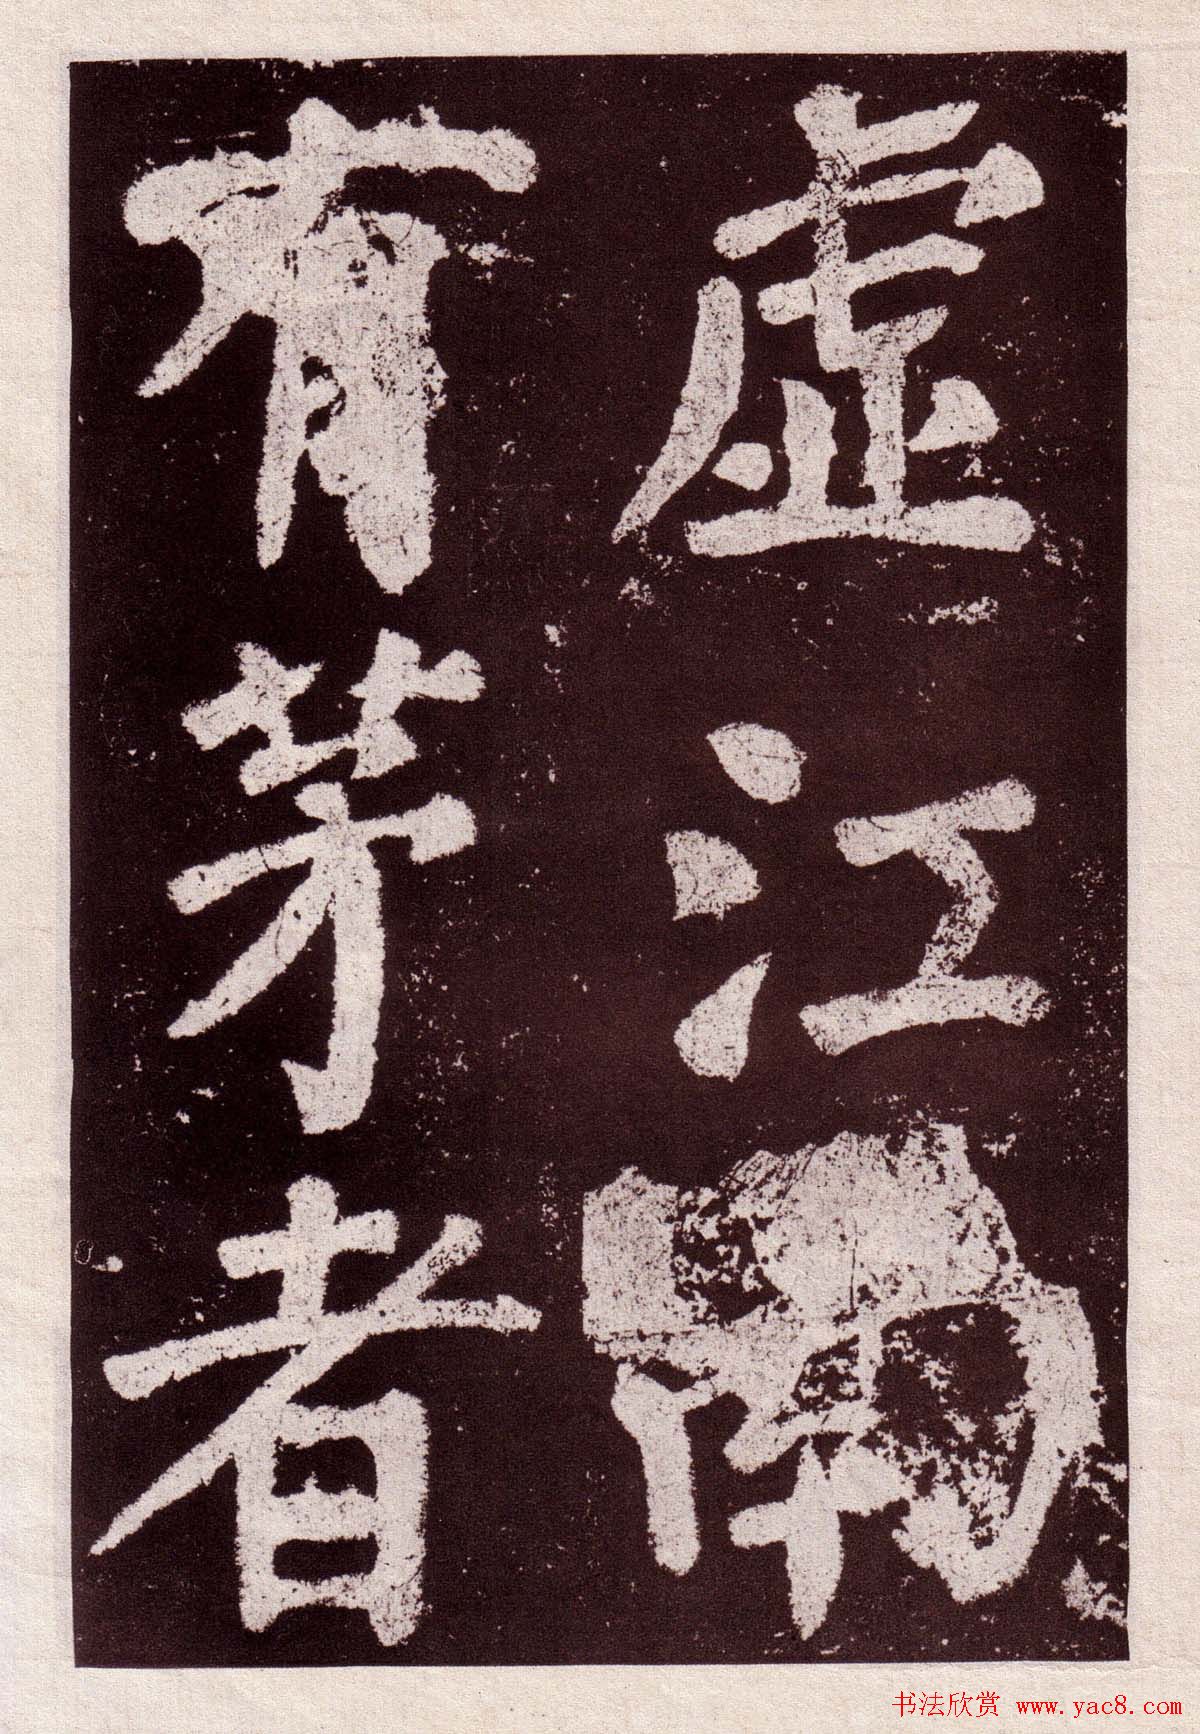 虚江南
有茅者
书法欣赏 www.yac8.com